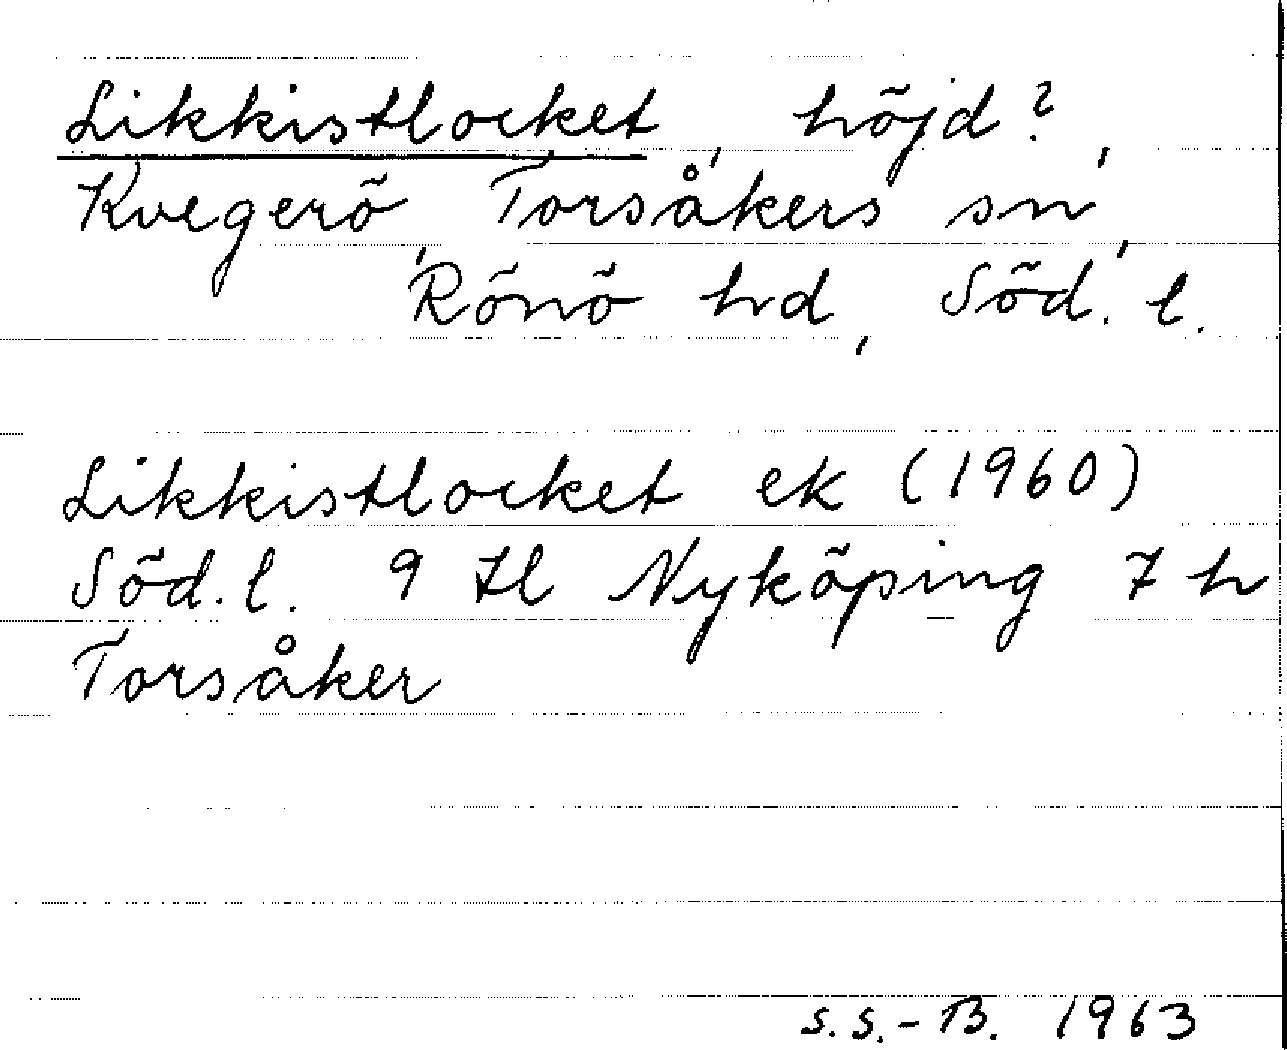 Likkistlocket, höjd?,
Kvegerö, Torsåkers sn,
Rönö hd, Söd. l.
Likkistlocket ek (1960)
Söd. l. 9 tl Nyköping 7 h
Torsåker
S.S.-B. 1963